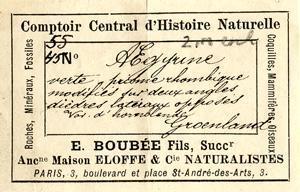 Comptoir Central d'Histoire Naturelle
55
45 No
Ægyrine
verte, prisme rhombique
modifiés sur deux angles
dièdres latéraux opposés
Groenland
Roches, Minéraux, Fossiles
Coquilles, Mammifères, Oiseaux
E. BOUBÉE Fils, Succr
Ancne Maison ELOFFE & Cie NATURALISTES
PARIS, 3, boulevard et place St-André-des-Arts.